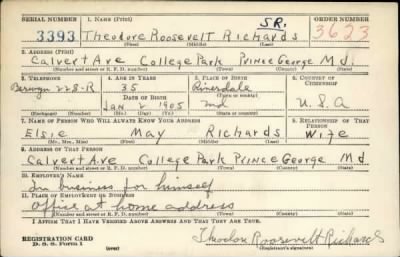 SERIAL NUMBER 1. NAME (Print) SR. ORDER NUMBER
3393 Theodore Roosevelt Richards 3623
(First) (Middle) (Last)
2. ADDRESS (Print)
Calvert Ave College Park Prince George Md.
(Number and street or R. F. D. number) (Town) (County) (State)
3. TELEPHONE 4. AGE IN YEARS 5. PLACE OF BIRTH 6. COUNTRY OF CITIZENSHIP
Berwyn 228-R 35 Riverdale
DATE OF BIRTH (Town or county)
Jan 2 1905 Md U.S.A
(Exchange) (Number) (Mo.) (Day) (Yr.) (State or country)
7. NAME OF PERSON WHO WILL ALWAYS KNOW YOUR ADDRESS 8. RELATIONSHIP OF THAT PERSON
Elsie May Richards Wife
(Mr., Mrs., Miss) (First) (Middle) (Last)
9. ADDRESS OF THAT PERSON
Calvert Ave College Park Prince George Md
(Number and street or R. F. D. number) (Town) (County) (State)
10. EMPLOYER'S NAME
In business for himself
11. PLACE OF EMPLOYMENT OR BUSINESS
Office at home address
(Number and street or R. F. D. number) (Town) (County) (State)
I AFFIRM THAT I HAVE VERIFIED ABOVE ANSWERS AND THAT THEY ARE TRUE.
REGISTRATION CARD Theodore Roosevelt Richards
D. S. S. Form 1 (over) (Registrant's signature)